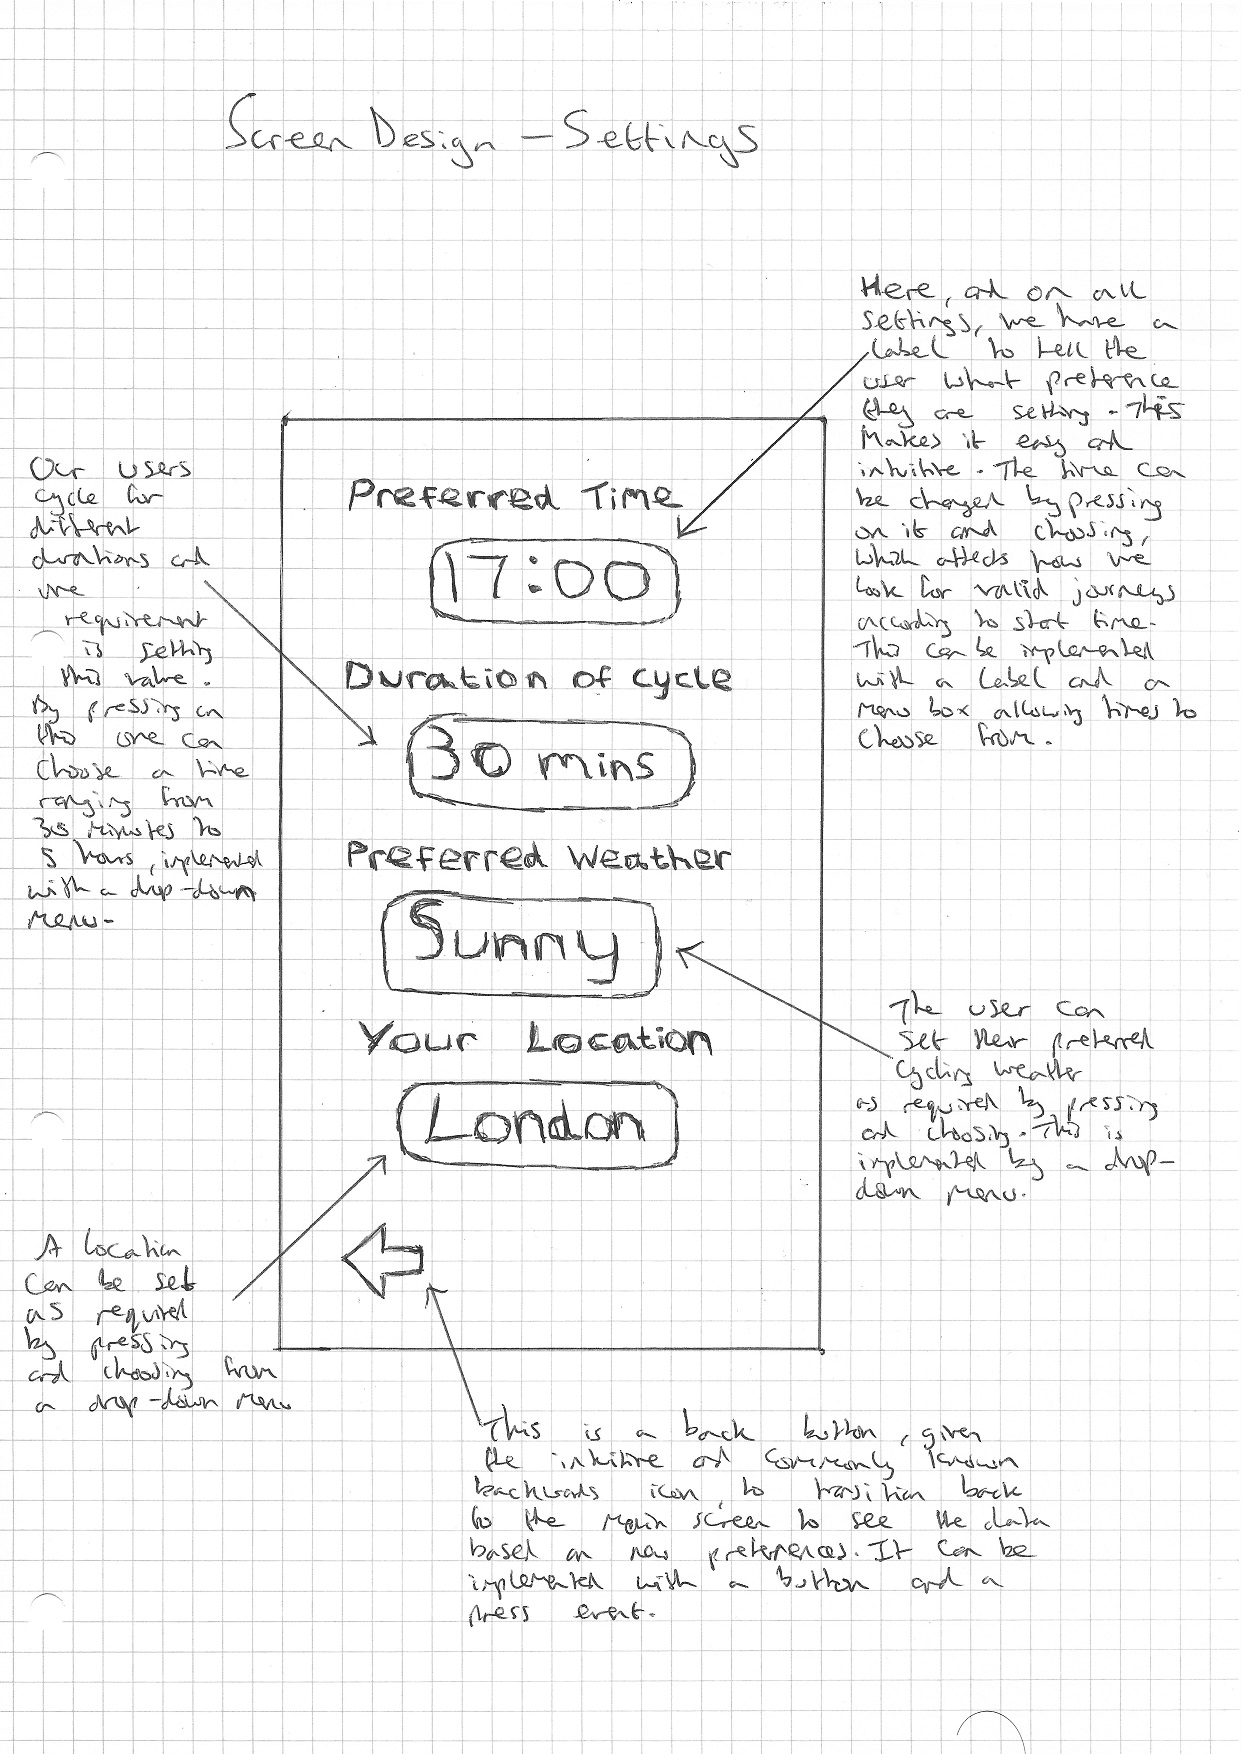 Screen Design - Settings
Here, and on all
settings, we have a
label to tell the
user what preference
they are setting. This
makes it easy and
intuitive. The time can
be changed by pressing
on it and choosing,
which affects how we
look for valid journeys
according to start time.
This can be implemented
with a label and a
menu box allowing times to
choose from.
Our users
cycle for
different
durations and
one
requirement
is setting
this value.
By pressing on
this one can
choose a time
ranging from
30 minutes to
5 hours, implemented
with a drop-down
menu.
Preferred Time
17:00
Duration of cycle
30 mins
Preferred Weather
Sunny
Your Location
London
The user can
set their preferred
cycling weather
as required by pressing
and choosing. This is
implemented by a drop-
down menu.
A location
can be set
as required
by pressing
and choosing from
a drop-down menu
This is a back button, given
the intuitive and commonly known
backwards icon, to transition back
to the main screen to see the data
based on new preferences. It can be
implemented with a button and a
press event.